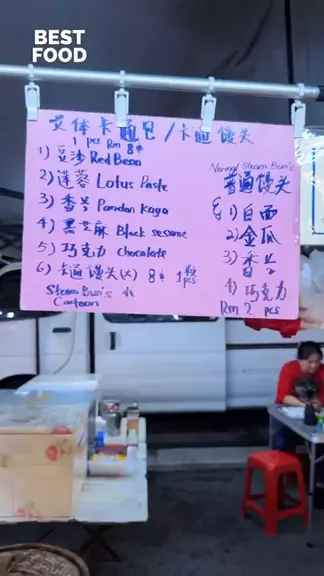 BEST
FOOD
立体卡通包/卡通馒头
1 pcs Rm 8
1) 豆沙 Red Bean
2) 莲蓉 Lotus Paste
3) 香兰 Pandan Kaya
4) 黑芝麻 Black sesame
5) 巧克力 chocolate
6) 卡通馒头(大) 8 1粒 pcs
Steam Bun's
Cartoon
Normal Steam Bun's
普通馒头
1) 白面
2) 金瓜
3) 香兰
4) 巧克力
Rm 2 pcs